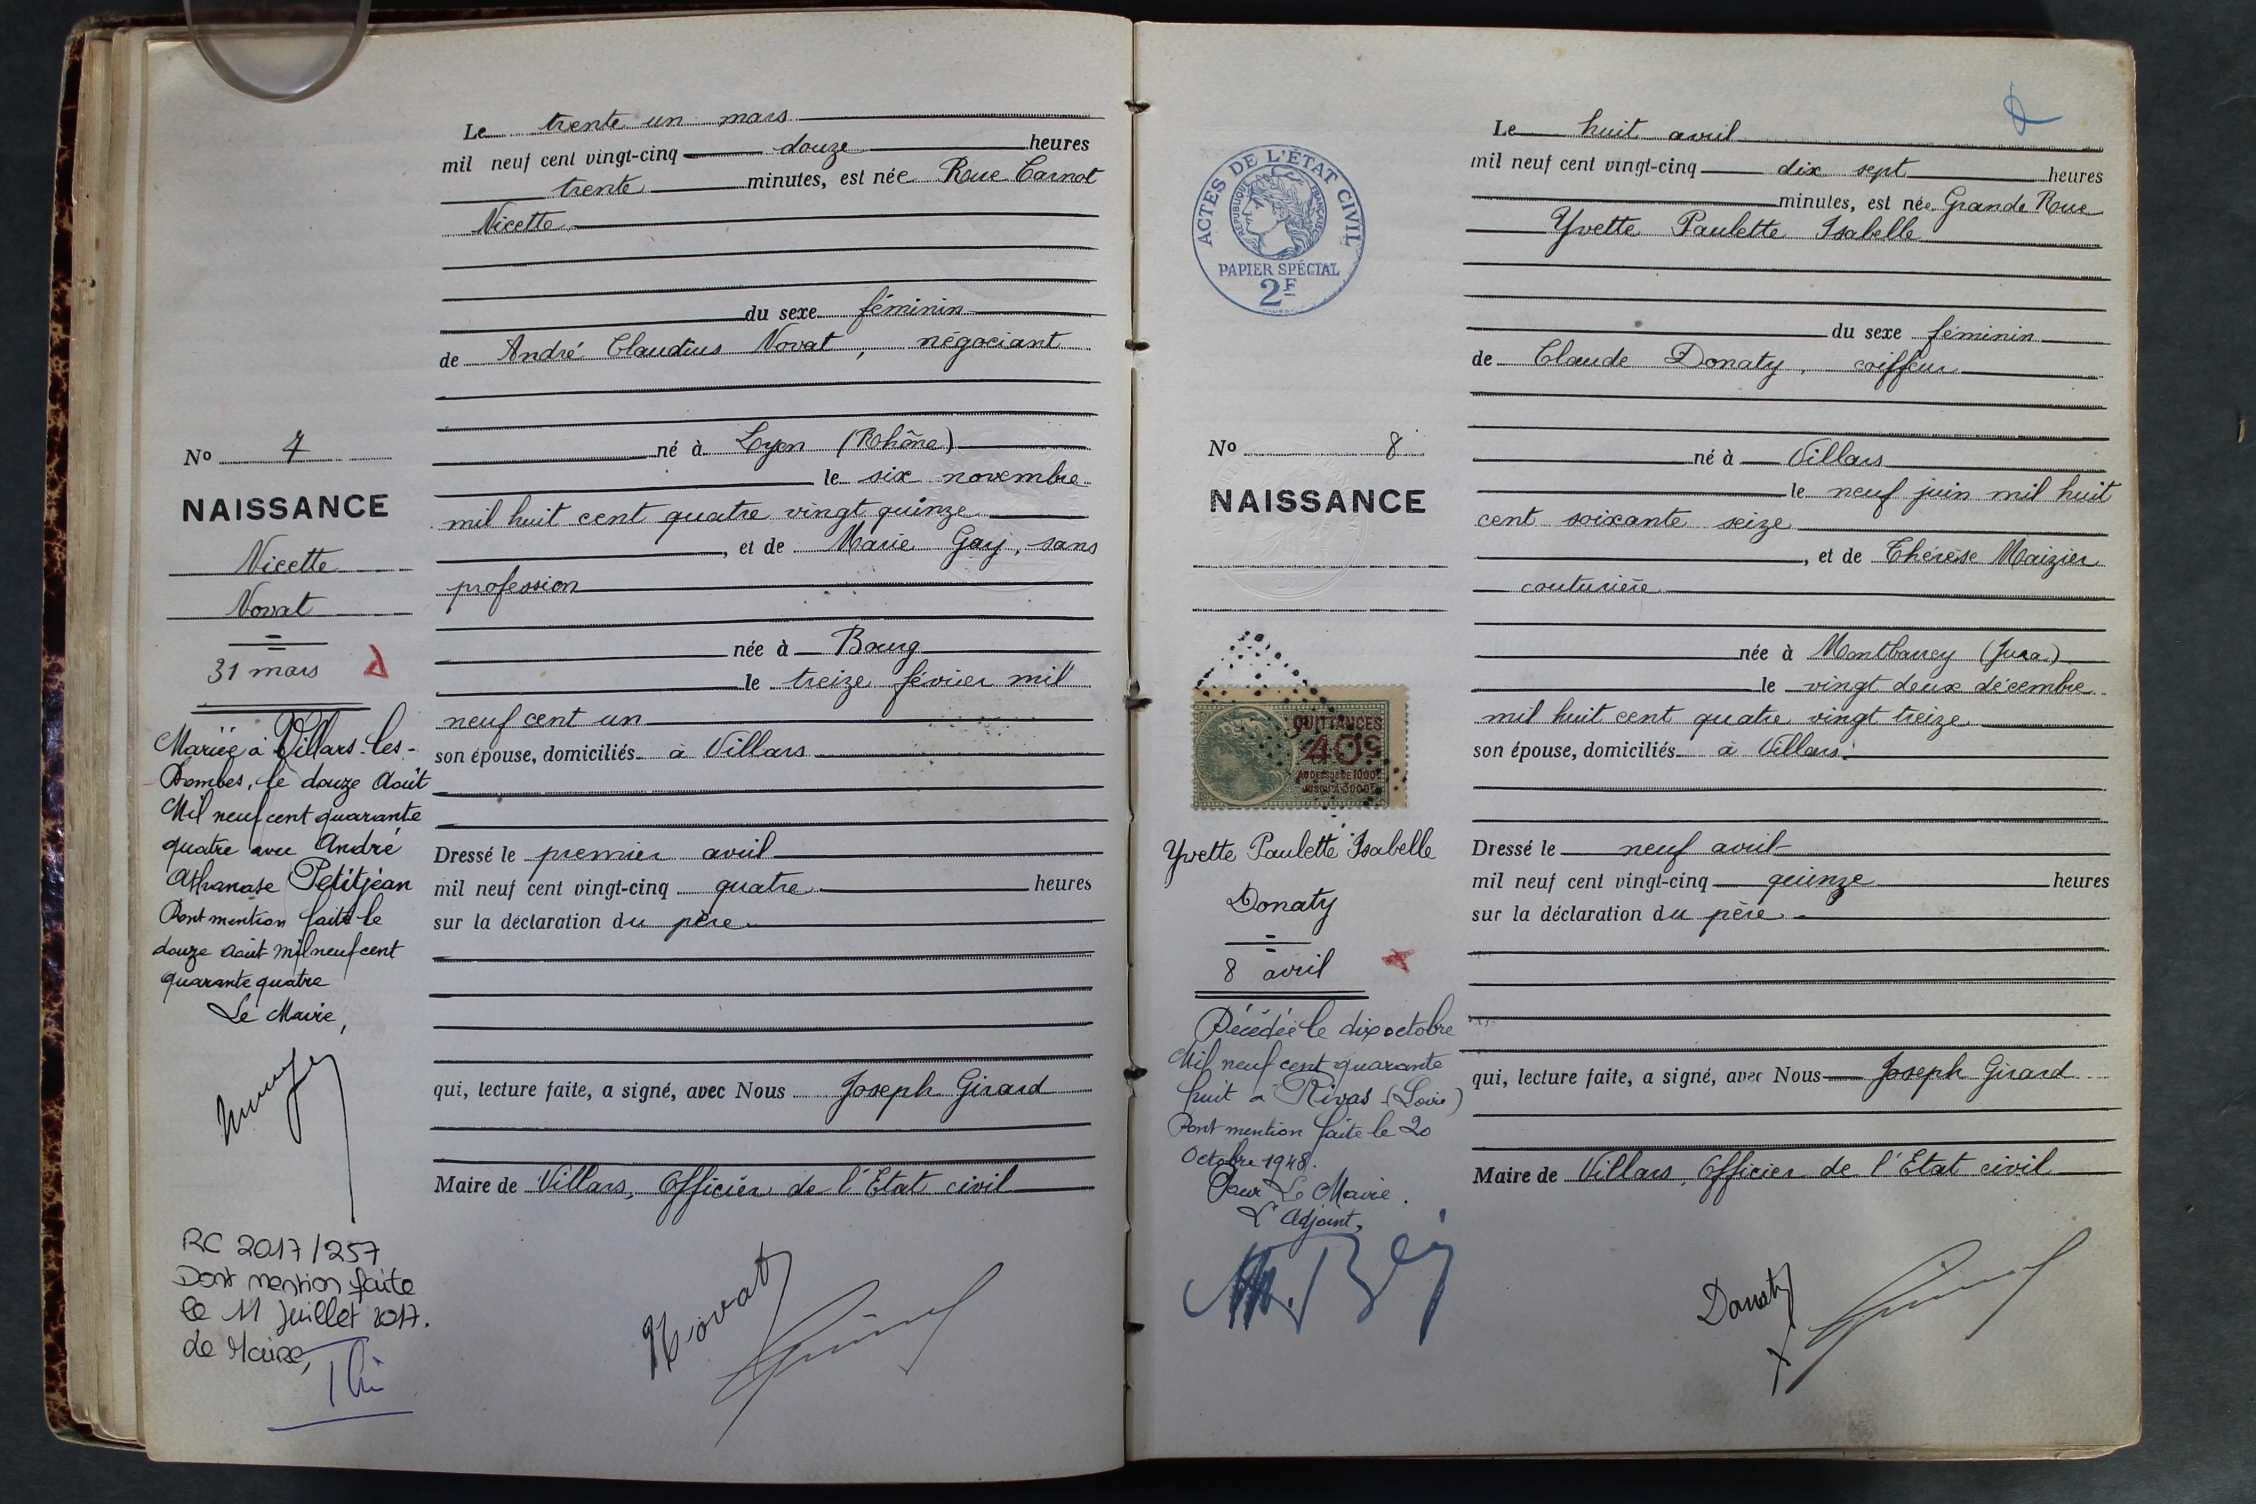 Le trente un mars
mil neuf cent vingt-cinq douze heures
trente minutes, est née Rue Carnot
Nicette
du sexe féminin
de André Claudius Novat, négociant
né à Lyon (Rhône)
le six novembre
mil huit cent quatre vingt quinze
, et de Marie Gay, sans
profession
née à Bourg
le treize février mil
neuf cent un
son épouse, domiciliés à Villars
Dressé le premier avril
mil neuf cent vingt-cinq quatre heures
sur la déclaration du père
qui, lecture faite, a signé, avec Nous Joseph Girard
Maire de Villars, Officier de l'Etat civil
Novat
No 7
NAISSANCE
Nicette
Novat
31 mars
Mariée à Villars-les-
Dombes, le douze Août
Mil neuf cent quarante
quatre avec André
Athanase Petitjean
Dont mention faite le
douze août mil neuf cent
quarante quatre
Le Maire,
RC 2017/257
Dont mention faite
le 11 Juillet 2017.
Le Maire,
ACTES DE L'ÉTAT CIVIL
RÉPUBLIQUE FRANÇAISE
PAPIER SPÉCIAL
2F
No 8
NAISSANCE
QUITTANCES
40c
AU DESSUS DE 1000F
JUSQU'A 3000F
Yvette Paulette Isabelle
Donaty
8 avril
Décédée le dix octobre
Mil neuf cent quarante
huit à Rivas (Loire)
Dont mention faite le 20
Octobre 1948.
Pour Le Maire.
L'adjoint,
Le huit avril
mil neuf cent vingt-cinq dix sept heures
minutes, est née Grande Rue
Yvette Paulette Isabelle
du sexe féminin
de Claude Donaty, coiffeur
né à Villars
le neuf juin mil huit
cent soixante seize
, et de Thérèse Maizier
couturière
née à Montbarrey (Jura)
le vingt deux décembre
mil huit cent quatre vingt treize
son épouse, domiciliés à Villars
Dressé le neuf avril
mil neuf cent vingt-cinq quinze heures
sur la déclaration du père
qui, lecture faite, a signé, avec Nous Joseph Girard
Maire de Villars, Officier de l'Etat civil
Donaty